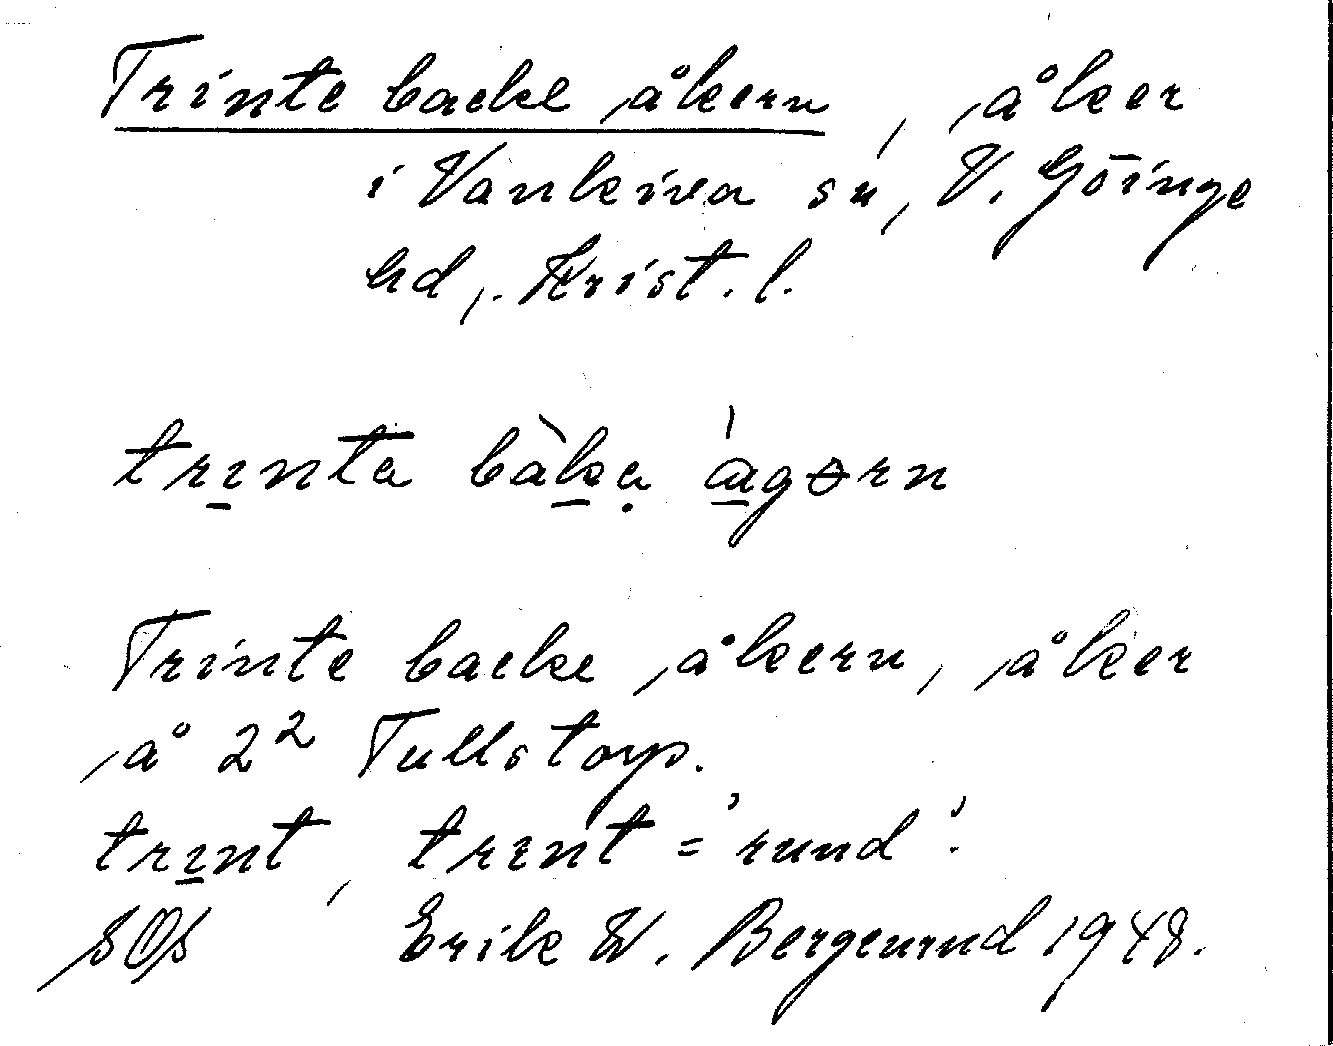 Trinte backe åkern, åker
i Vankiva sn, V. Göinge
hd, Krist. l.
trınta bàka ágɵrn
Trinte backe åkern, åker
å 2² Tullstorp.
trınt, trınt = 'rund'.
SOS Erik W. Bergenrud 1948.